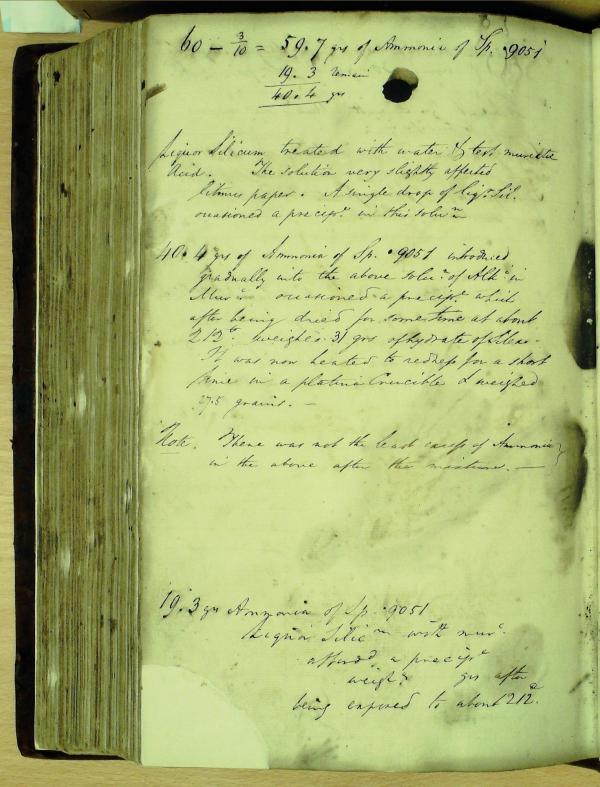 60 - 3/10 = 59.7 grs of Ammonia of Sp. .9051
19.3 remain
40.4 grs
Liquor Silicum treated with water & test muriatic
Acid. The solution very slightly affected
litmus paper. A single drop of liqr. Sil.
occasioned a precipt. in this solun
40.4 grs of Ammonia of Sp. .9051 introduced
gradually into the above solun. of in
Mur occasioned a precipt. which
after being dried for some time at about
212° weighed 31 grs of hydrate of Silex.
It was now heated to redness for a short
time in a platina Crucible & weighed
27.5 grains. —
Note. There was not the least excess of Ammonia
in the above after the mixture. —
19.3 grs Ammonia of Sp. .9051
Liquor Silicm with mur.
afford a precipt
weighg. grs after
being exposed to about 212°.